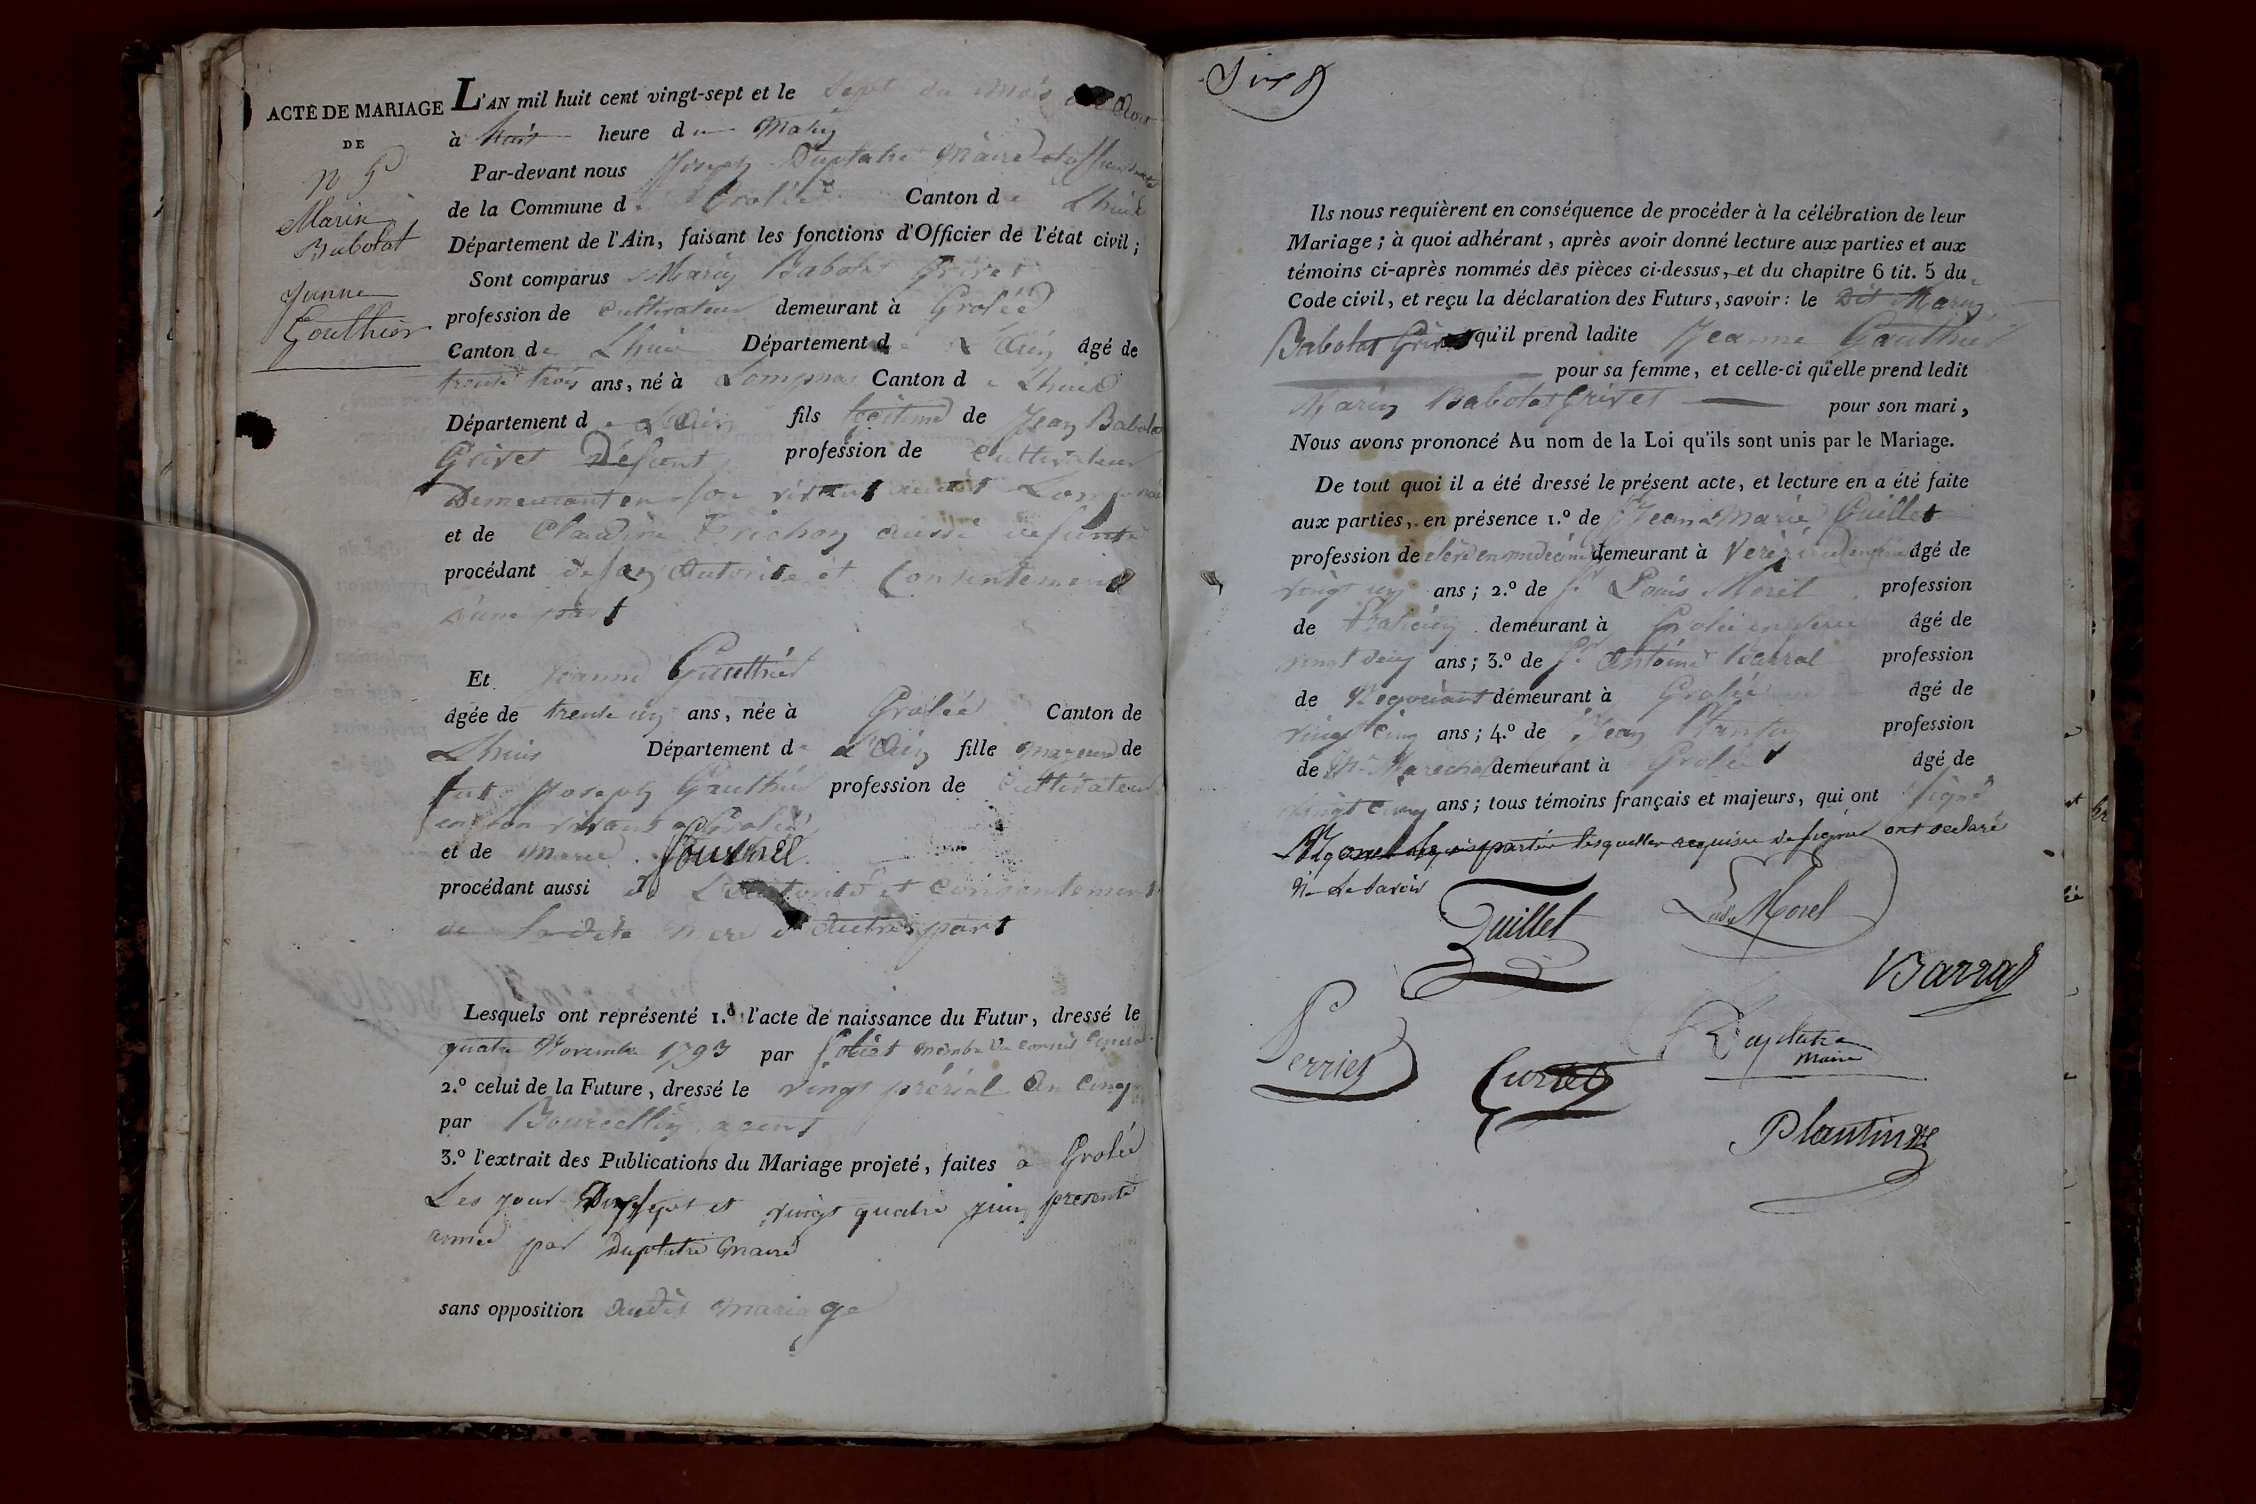 ACTE DE MARIAGE
DE
N 5
Marin
Babolat
Janne
Gouthier
L'AN mil huit cent vingt-sept et le sept du mois Aout
à huit heure du Matin
Par-devant nous Joseph Duplatre Maire
de la Commune de Grolée Canton de Lhuis
Département de l'Ain, faisant les fonctions d'Officier de l'état civil;
Sont comparus Marin Babolat Grivet
profession de Cultivateur demeurant à Grolée
Canton de Lhuis Département de L'Ain âgé de
trente trois ans, né à Lompnas Canton de Lhuis
Département de L'Ain fils légitime de Jean Babolat
Grivet Défunt profession de Cultivateur
Demeurant en son vivant audit Lompnas
et de Claudine Trichon aussi défunte
procédant de son Autorité et Consentement
D'une part
Et Jeanne Gauthier
âgée de trente un ans, née à Grolée Canton de
Lhuis Département de L'Ain fille majeure de
fut Joseph Gauthier profession de Cultivateur
en son vivant a Grolée
et de Marie
procédant aussi de L'autorité et consentement
de La dite mere d'autre part
Lesquels ont représenté 1.º l'acte de naissance du Futur, dressé le
quatre Novembre 1793 par membre du conseil General
2.º celui de la Future, dressé le vingt prérial an Cinq
par Bourcellin agent
3.º l'extrait des Publications du Mariage projeté, faites a Grolée
Les jour Dix sept et vingt quatre juin presente
année par Duplatre Maire
sans opposition Audit mariage
Ils nous requièrent en conséquence de procéder à la célébration de leur
Mariage; à quoi adhérant, après avoir donné lecture aux parties et aux
témoins ci-après nommés des pièces ci-dessus, et du chapitre 6 tit. 5 du
Code civil, et reçu la déclaration des Futurs, savoir: le Dit Marin
Babolat Grivet qu'il prend ladite Jeanne Gauthier
pour sa femme, et celle-ci qu'elle prend ledit
Marin Babolat Grivet pour son mari,
Nous avons prononcé Au nom de la Loi qu'ils sont unis par le Mariage.
De tout quoi il a été dressé le présent acte, et lecture en a été faite
aux parties, en présence 1.º de Sr Jean Marie Quillet
profession de élève en medecine demeurant à âgé de
vingt un ans; 2.º de Sr Louis Morel profession
de demeurant à Grolée âgé de
ans; 3.º de Sr Antoine Barral profession
de Negociant demeurant à Grolée âgé de
vingt Cinq ans; 4.º de Jean Plantin profession
de Mr Marechal demeurant à Grolée âgé de
vingt Cinq ans; tous témoins français et majeurs, qui ont Signé
parties lesquelles requises de signer ont déclaré
ne Le Savoir
Quillet
Ls Morel
Barral
Perrier
Duplatre
Maire
Curtet
Plantin